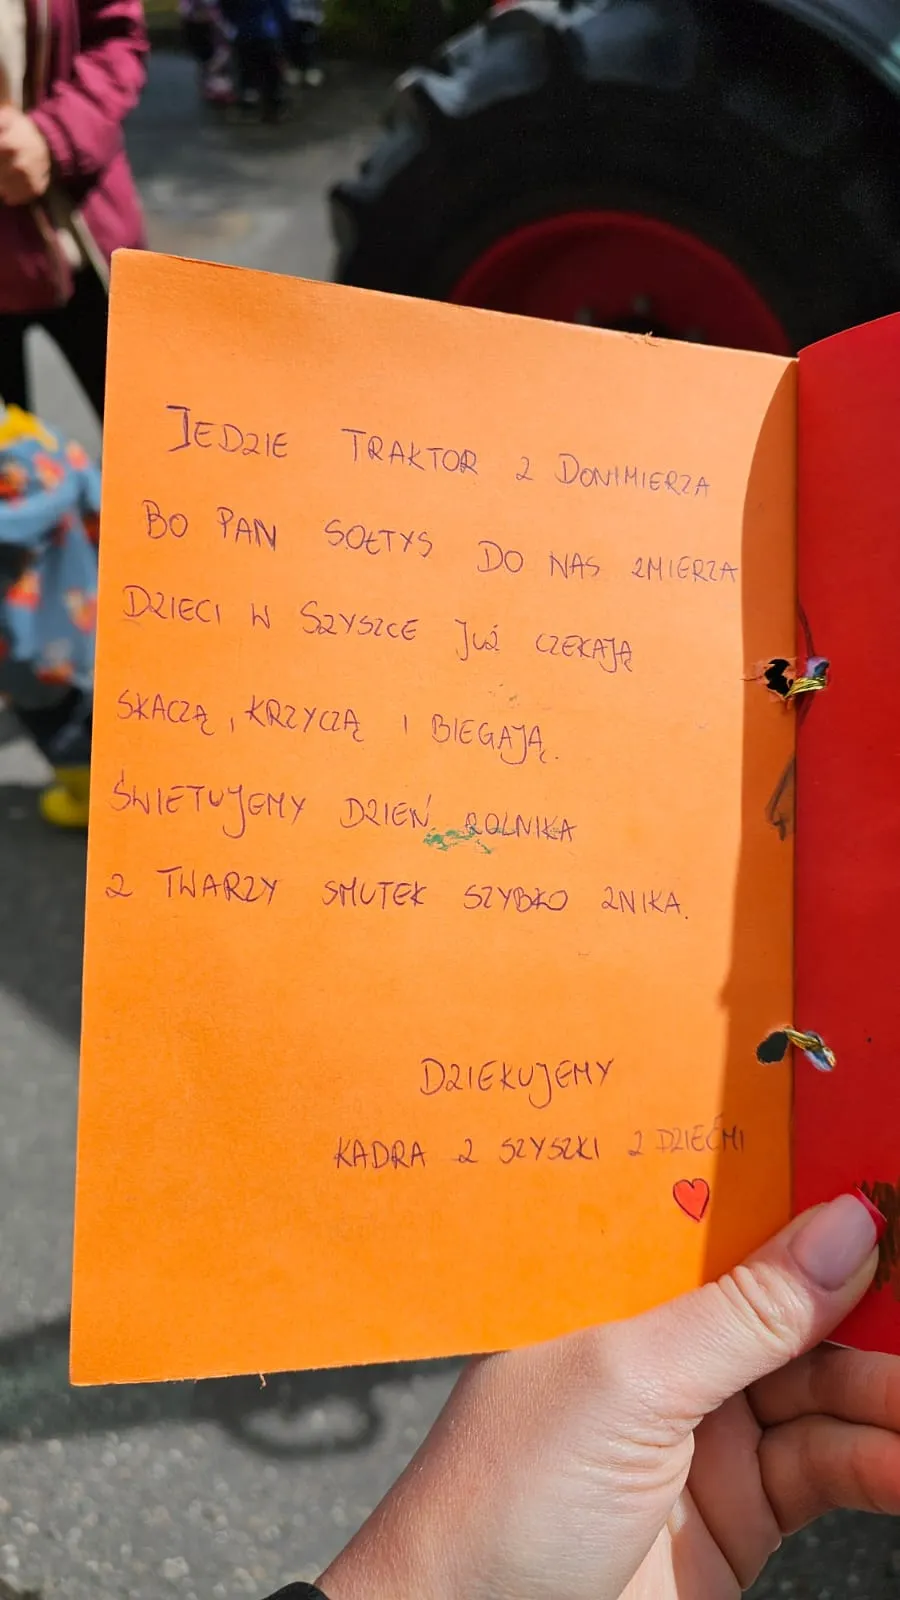 JEDZIE TRAKTOR Z DONIMIERZA
BO PAN SOŁTYS DO NAS ZMIERZA
DZIECI W SZYSZCE JUŻ CZEKAJĄ
SKACZĄ, KRZYCZĄ I BIEGAJĄ.
ŚWIETUJEMY DZIEŃ ROLNIKA
Z TWARZY SMUTEK SZYBKO ZNIKA.
DZIEKUJEMY
KADRA Z SZYSZKI Z DZIEĆMI